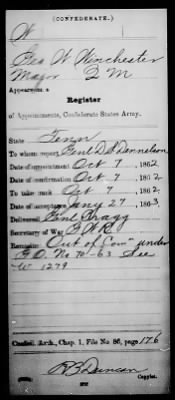 (CONFEDERATE.)
W
Geo W Winchester
Major Q M
Appears on a
Register
of Appointments, Confederate States Army.
State Tenn
To whom report Genl D. S. Donnelson
Date of appointment Oct 7, 1862
Date of confirmation Oct 7, 1862
To take rank Oct 7, 1862
Date of acceptance Jany 27, 1863
Delivered Genl Bragg
Secretary of War G. W. R.
Remarks: Out of Com under
G.O. No 70-63 See
W 1279
Confed. Arch., Chap. 1, File No 86, page 176
R B Duncan
Copyist.